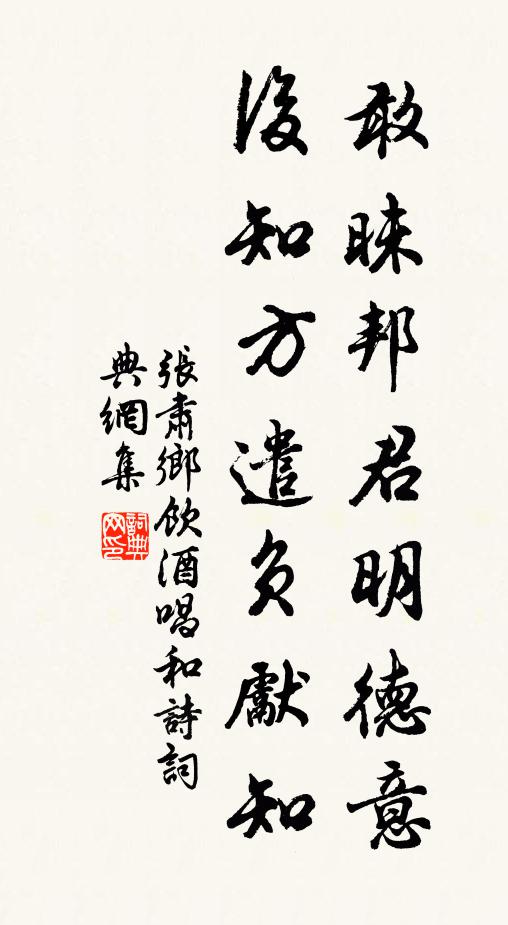 敢昧邦君明德意
後知方遣負獻知
張肅鄉飲酒唱和詩詞
典網集
詞典
网印